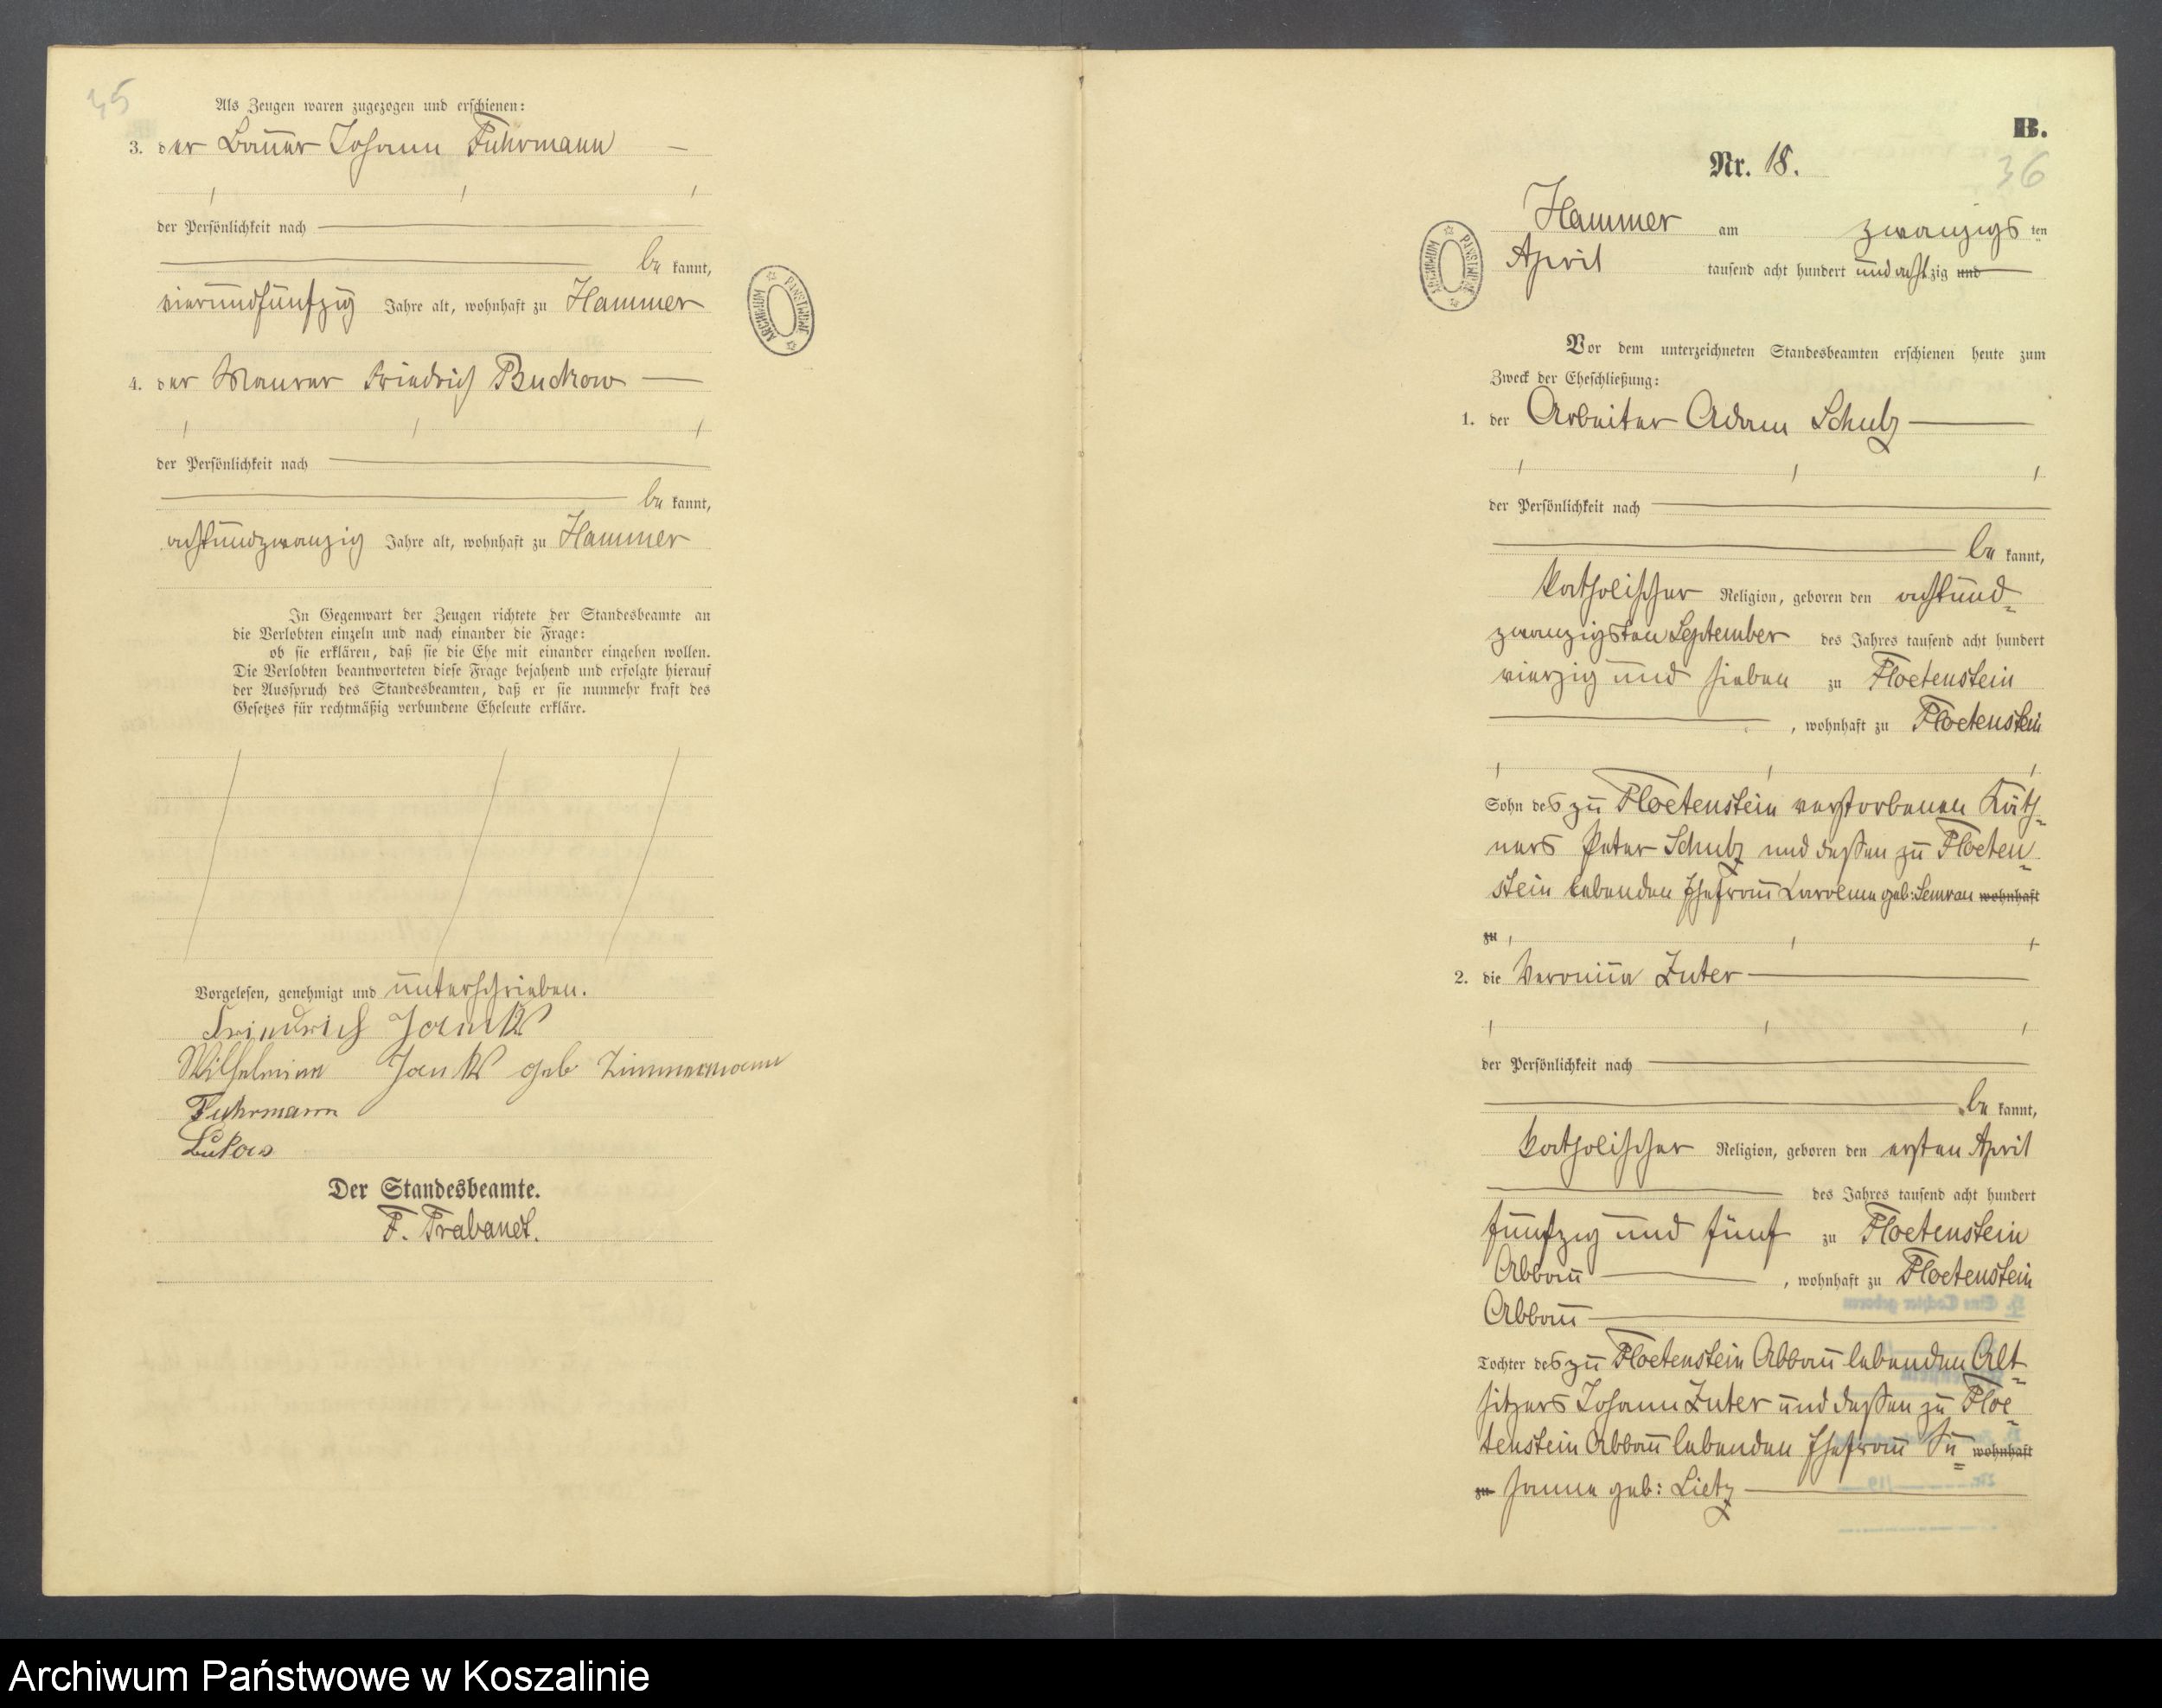 35
Als Zeugen waren zugezogen und erschienen:
3. der Bauer Johann Fuhrmann
der Persönlichkeit nach
be kannt,
vierundfünfzig Jahre alt, wohnhaft zu Hammer
4. der Maurer Friedrich
der Persönlichkeit nach
be kannt,
achtundzwanzig Jahre alt, wohnhaft zu Hammer
In Gegenwart der Zeugen richtete der Standesbeamte an
die Verlobten einzeln und nach einander die Frage:
ob sie erklären, daß sie die Ehe mit einander eingehen wollen.
Die Verlobten beantworteten diese Frage bejahend und erfolgte hierauf
der Ausspruch des Standesbeamten, daß er sie nunmehr kraft des
Gesetzes für rechtmäßig verbundene Eheleute erkläre.
Vorgelesen, genehmigt und unterschrieben.
Friedrich Jank
Wilhelmine Jank geb Zimmermann
Fuhrmann
Der Standesbeamte.
F. Prabanet.
ARCHIWUM PAŃSTWOWE
B.
Nr. 18.
36
Hammer am zwanzigs ten
April tausend acht hundert und acht zig und
ARCHIWUM PAŃSTWOWE
Vor dem unterzeichneten Standesbeamten erschienen heute zum
Zweck der Eheschließung:
1. der Arbeiter Adam Schulz
der Persönlichkeit nach
be kannt,
katholischer Religion, geboren den achtund=
zwanzigsten September des Jahres tausend acht hundert
vierzig und sieben zu Floetenstein
, wohnhaft zu Floetenstein
Sohn des zu Floetenstein verstorbenen Käth=
ners Peter Schulz und dessen zu Floeten=
stein lebenden Ehefrau geb: Semrau wohnhaft
zu
2. die Zuter
der Persönlichkeit nach
be kannt,
katholischer Religion, geboren den ersten April
des Jahres tausend acht hundert
fünfzig und fünf zu Floetenstein
Abbau , wohnhaft zu Floetenstein
Abbau
Tochter des zu Floetenstein Abbau lebenden Alt=
sitzers Johann Zuter und dessen zu Floe=
tenstein Abbau lebenden Ehefrau Su= wohnhaft
zu sanna geb: Lietz
Archiwum Państwowe w Koszalinie